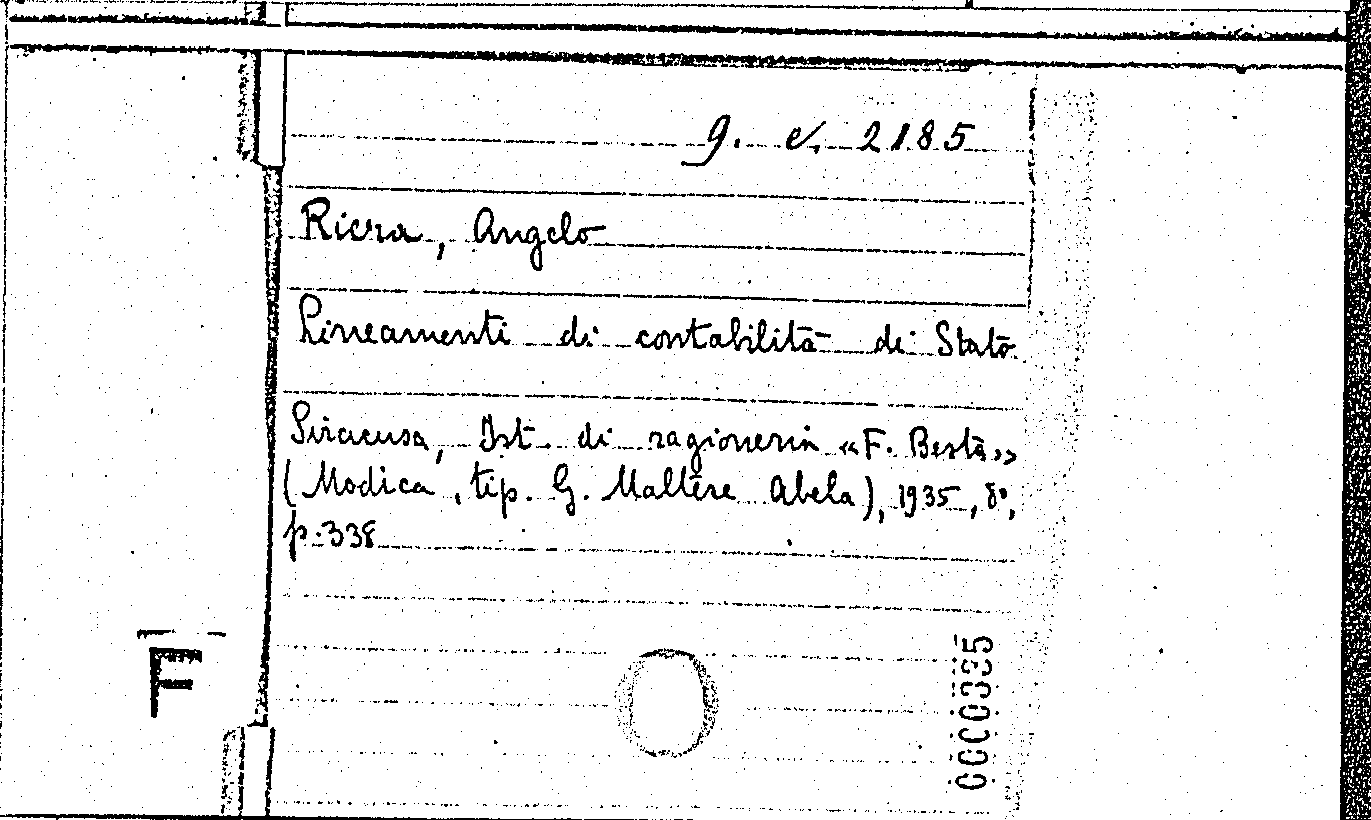 g. e. 2185
Riera, Angelo
Lineamenti di contabilità di Stato.
Siracusa, Ist. di ragioneria «F. Besta»
(Modica, tip. G. Maltese Abela), 1935, 8°,
p. 338
F
0000335